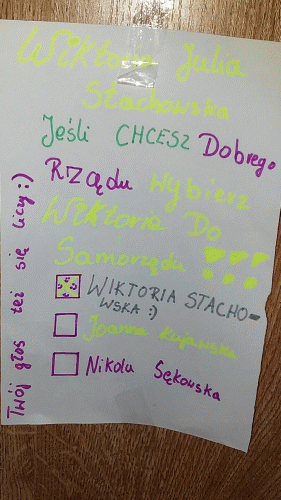 Wiktoria Julia
Stachowska
Jeśli CHCESZ Dobrego
RZĄDU Wybierz
Wiktorie Do
Samorządu !!!
WIKTORIA STACHO-
WSKA :)
Joanna Kujawska
Nikola Sękowska
Twój głos też się liczy :)